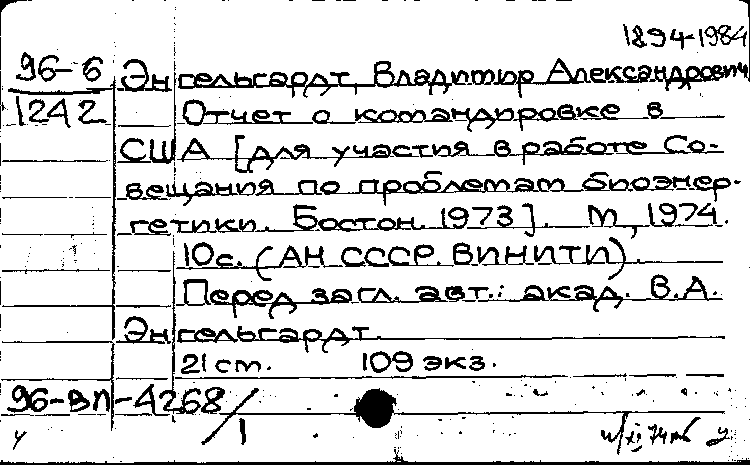 1894-1984
96-6 Энгельгардт, Владимир Александрович
1242 Отчет о командировке в
США [для участия в работе Со-
вещания по проблемам биоэнер-
гетики. Бостон. 1973]. М., 1974.
10с. (АН СССР. ВИНИТИ).
Перед загл. авт.: акад. В.А.
Энгельгардт.
21 см. 109 экз.
96-ВП-4268/1